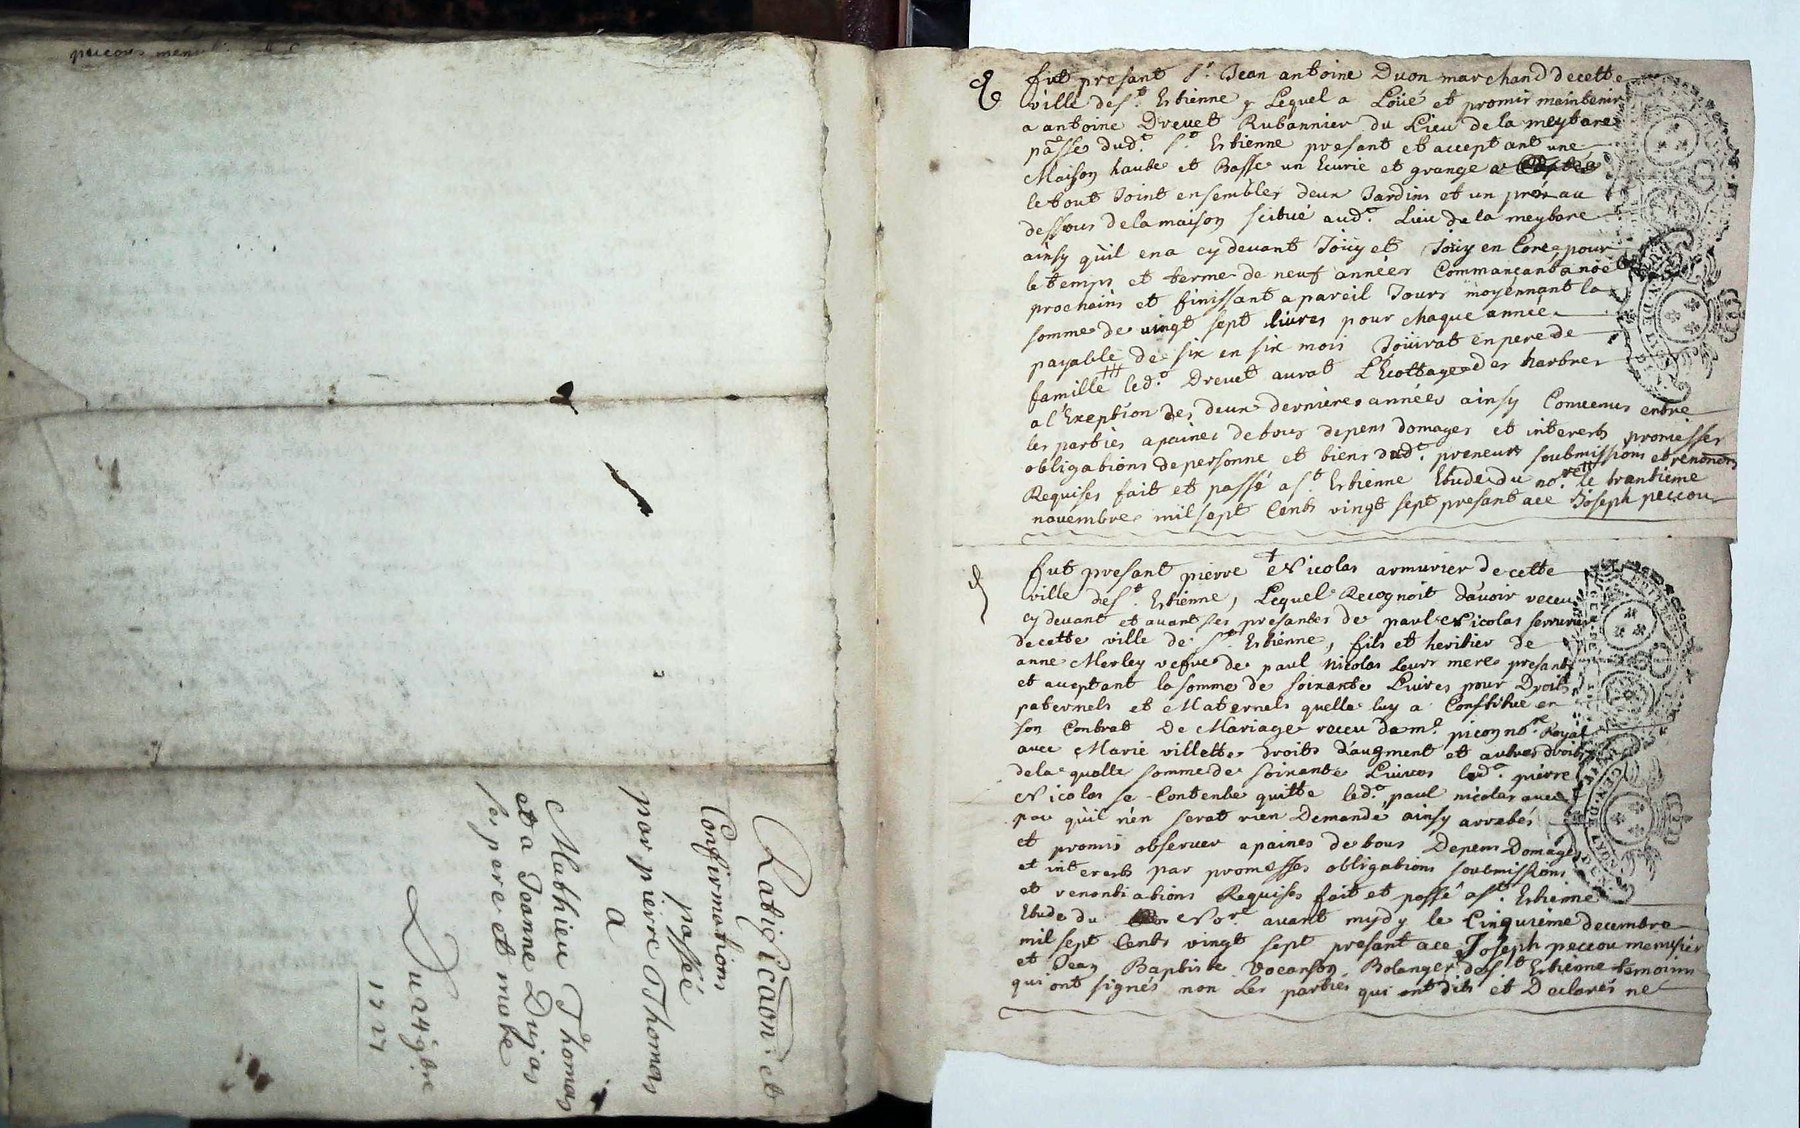 Ratigicaon et
Confirmations
passé
par pierre Thomas
A
Mathieu Thomas
et a Jeanne Dujas
ses pere et mere
Du 24 9bre
1727
fut presant Sr. Jean antoine Duon marchand de cette
ville de St. Estienne, Lequel a Loüé et promis maintenir
a antoine Drevet Rubannier du Lieu de la meytare
passe dudt. St. Estienne presant et acceptant une
Maison haute et Basse un Ecurie et grange
le tout Joint ensembles deux Jardins et un prés au
dessous de la maison scitué audt. Lieu de la meytare
ainsy qu'il en a cy devant Joüy et Joüy encore, pour
le temps et terme de neuf années Commancant a noel
prochains et finissant a pareil Jours moyennant la
somme de vingt sept livres pour chaque année
payable de six en six mois Joüirat en pere de
famille ledt. Drevet aurat L'Ecottage des harbres
a l'Exeption des deux dernieres années ainsy Convenus entre
les parties a paines de tous depens domages et interests promesses
obligations de personne et biens dudt. preneurs soubmissions et renoncons
Requises fait et passé a St. Estienne Etude du no.re le trantieme
novembre mil sept Cents vingt sept presant ace Joseph peccou
fut presant pierre Nicolas armurier de cette
ville de St. Estienne, Lequel Recognoit d'avoir receu
cy devant et avant ses presantes de paul Nicolas serrurier
de cette ville de St. Estienne, fils et heritier de
anne Merley vefve de paul Nicolas Leurs mere presant
et aceptant la somme de soixante Livres pour Droits
paternels et Maternels quelle luy a Constitué en
son Contrat De Mariage receu da mt. picon nre. Royal
avec Marie villette Droits d'augment et autres droits
de la qualle somme de soixante Livres ledt. pierre
Nicolas se Contente quitte ledt. paul nicolas avec
pac qu'il n'en serat rien Demandé ainsy arrestes
et promis observer a paines de tous Depens Domages
et interests par promesses obligations soubmissions
et renontiations Requises fait et passé a St. Estienne
Etude du Nore. avant mydy le Cinquieme decembre
mil sept Cents vingt sept presant ace Joseph peccou menusier
et Jean Baptiste Vocanson Bolanger de St. Estienne temoins
qui ont signés non Les parties qui ont dits et Declarés ne